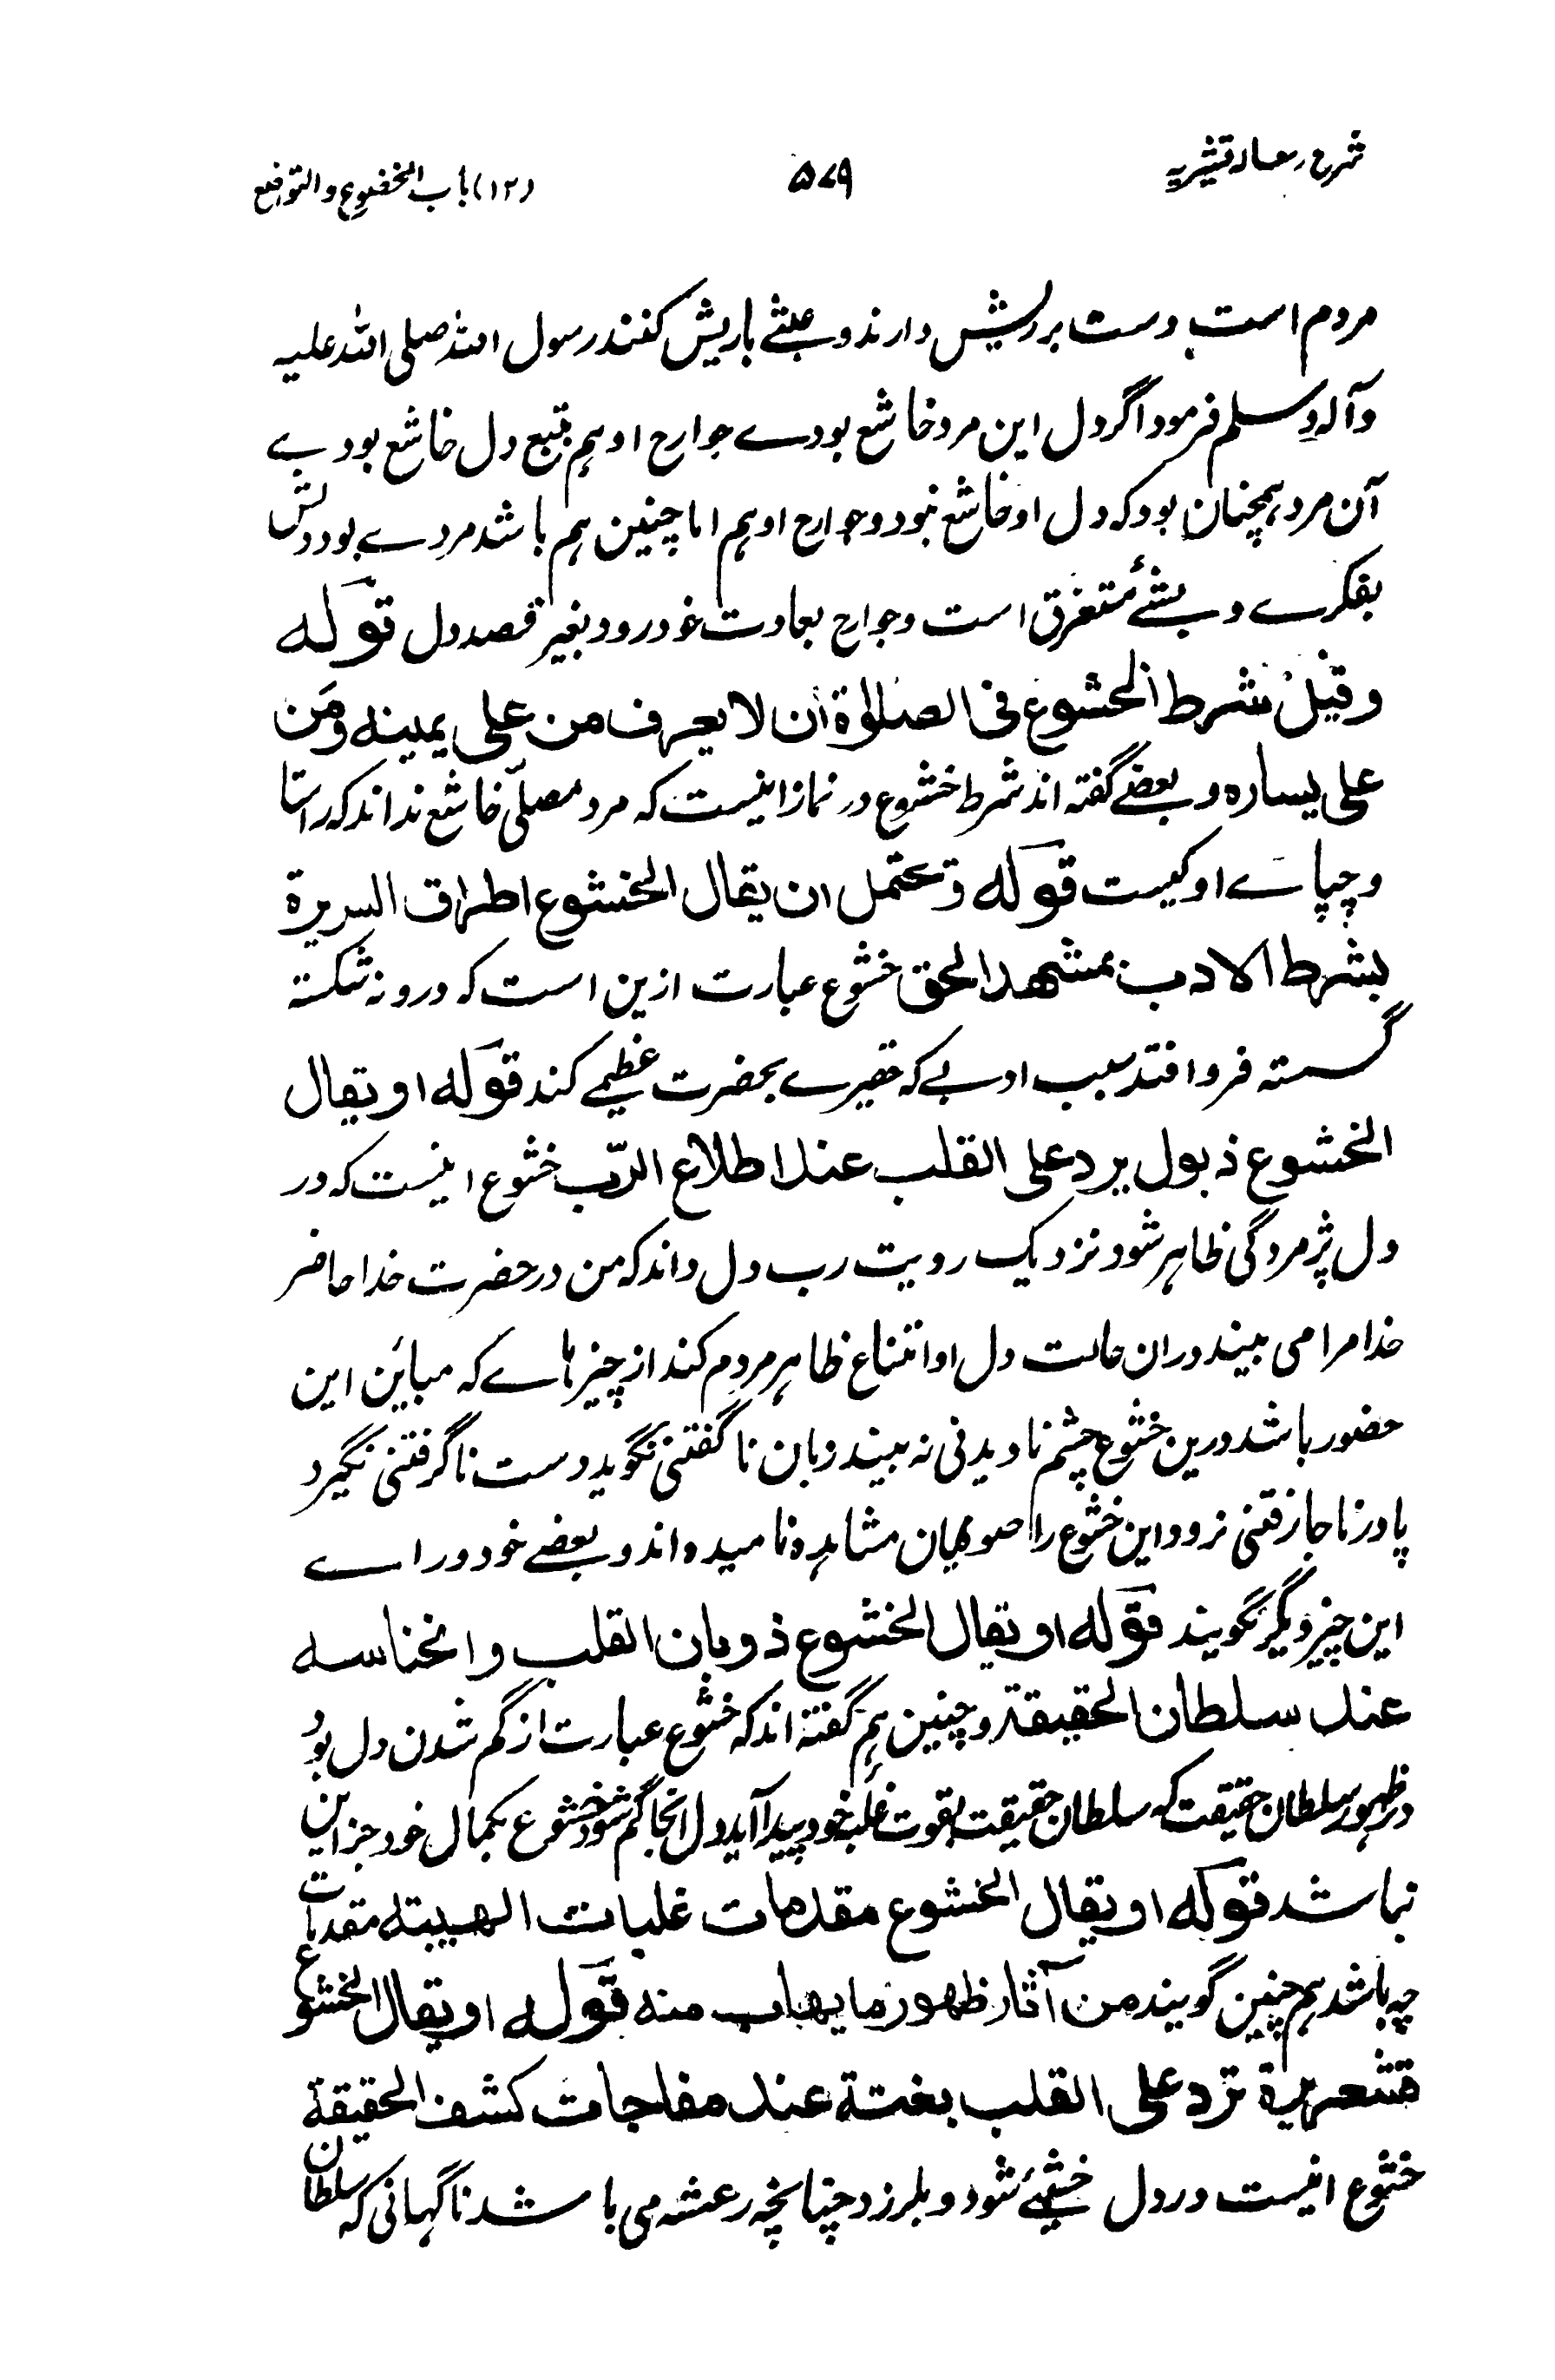 شرح رسالہ قشیریہ
۵۷۹
(۱۲) باب الخضوع والتواضع
مردم است دست بر ریش دارند و عبثے با ریش کنند رسول اللہ صلی اللہ علیہ
وآلہ وسلم فرمود اگر دل این مرد خاشع بودے جوارح او ہم بتبع دل خاشع بودے
آن مرد ہمچنان بود کہ دل او خاشع نبود و جوارح او ہم اما چنین ہم باشد مردے بود دلش
بفکرے و بشئے مستغرق است و جوارح بعادت خود رود بغیر قصد دل قولہ
وقیل شرط الخشوع فی الصلوٰة ان لا یعرف من علی یمینہ ومن
علی یسارہ و بعضے گفتہ اند شرط خشوع در نماز اینست کہ مرد مصلّی خاشع نداند کہ راستا
و چپاے او کیست قولہ ویحتمل ان یقال الخشوع اطراق السریرة
بشرط الادب بمشهد الحق خشوع عبارت ازین است کہ درونہ شکستہ
گسستہ فرو افتد بسبب ادبے کہ حقیرے بحضرت عظیمے کند قولہ او یقال
الخشوع ذبول یرد علی القلب عند اطلاع الربّ خشوع اینست کہ در
دل پژمردگی ظاہر شود نزدیک رویت رب دل داند کہ من در حضرت خدا حاضر
خدا مرا می بیند دران حالت دل او امتناع ظاہر مردم کند از چیزہاے کہ مبائن این
حضور باشد درین خشوع چشم نا دیدنی نہ بیند زبان نا گفتنی نگوید دست نا گرفتنی نگیرد
پا در نا جا رفتنی نرود این خشوع را صوفیان مشاہدہ نامیدہ اند و بعضے خود وراے
این چیز دیگر نگویند قولہ او یقال الخشوع ذوبان القلب و انخناسه
عند سلطان الحقیقة و چنین ہم گفتہ اند کہ خشوع عبارت از گم شدن دل بود
در ظہور سلطان حقیقت کہ سلطان حقیقت بقوت غلبہ خود پیدا آید دل آنجا گم شود خشوع بکمال خود جز این
نباشد قولہ او یقال الخشوع مقدمات غلبات الهیبة مقدمات
چہ باشد ہم چنین گویند من آثار ظهور ما یهاب منه قولہ او یقال الخشوع
قشعریرة ترد علی القلب بغتة عند مفاجات کشف الحقیقة
خشوع اینست در دل خشیتے شود و بلرزد چنانچہ رعشہ می باشد ناگہانی کہ سلطان